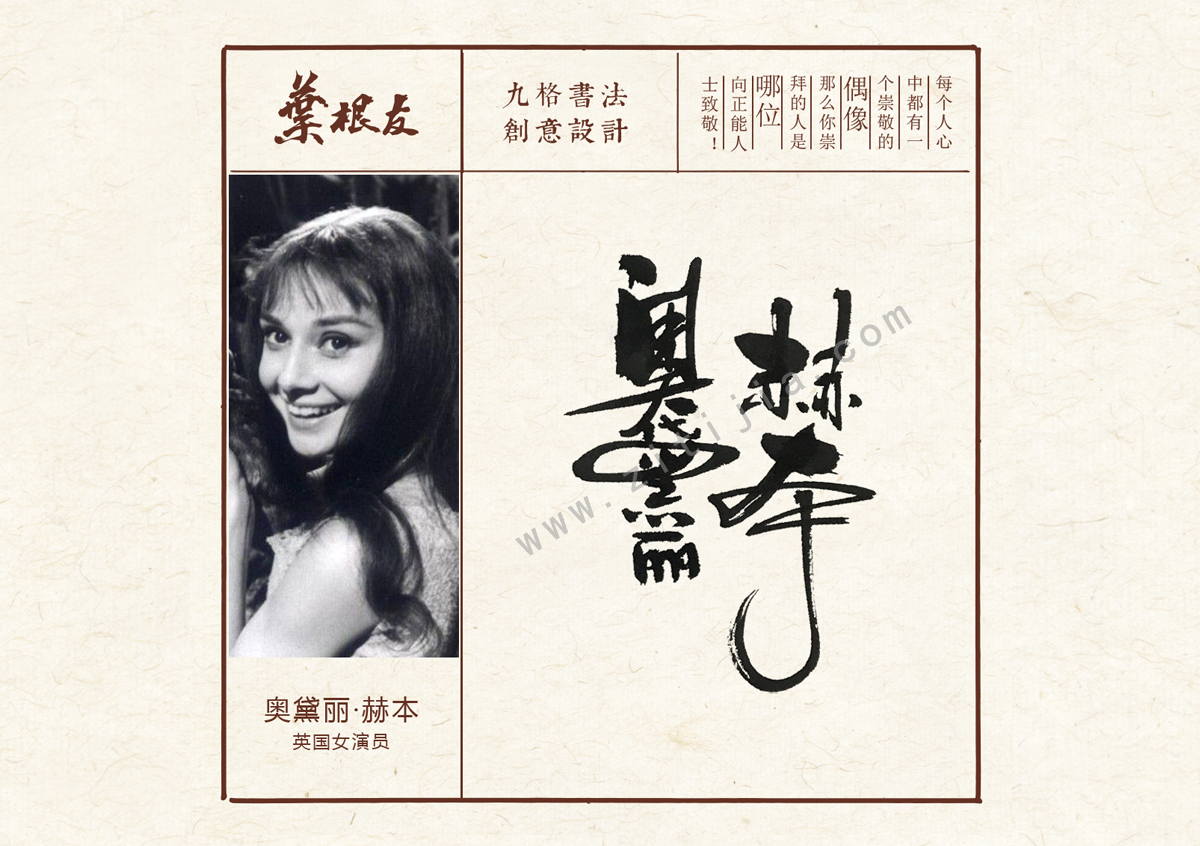 葉根友
九格書法
創意設計
每个人心
中都有一
个崇敬的
偶像
那么你崇
拜的人是
哪位
向正能人
士致敬！
奥黛丽
赫本
www.zitijia.com
奥黛丽·赫本
英国女演员